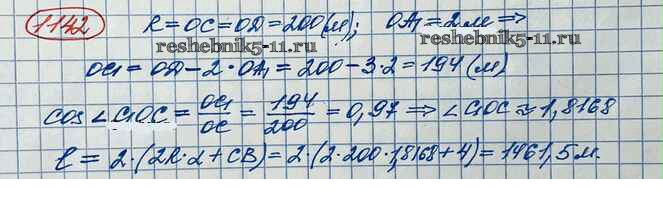 1142
R = OC = OD = 200(м); OA₁ = 2м ⇒
reshebnik5-11.ru reshebnik5-11.ru
OC₁ = OD - 2 · OA₁ = 200 - 3·2 = 194 (м)
cos∠C₁OC = OC₁/OC = 194/200 = 0,97 ⇒ ∠C₁OC ≈ 1,8168
ℓ = 2·(2R·α + CB) = 2·(2·200·1,8168+4) = 1461,5 м.